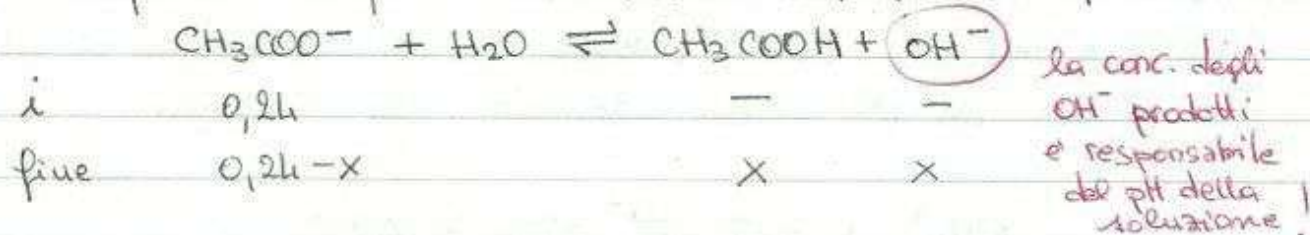 CH₃COO⁻ + H₂O ⇌ CH₃COOH + OH⁻
i 0,24 — —
fine 0,24-x x x
la conc. degli
OH⁻ prodotti
è responsabile
del pH della
soluzione !